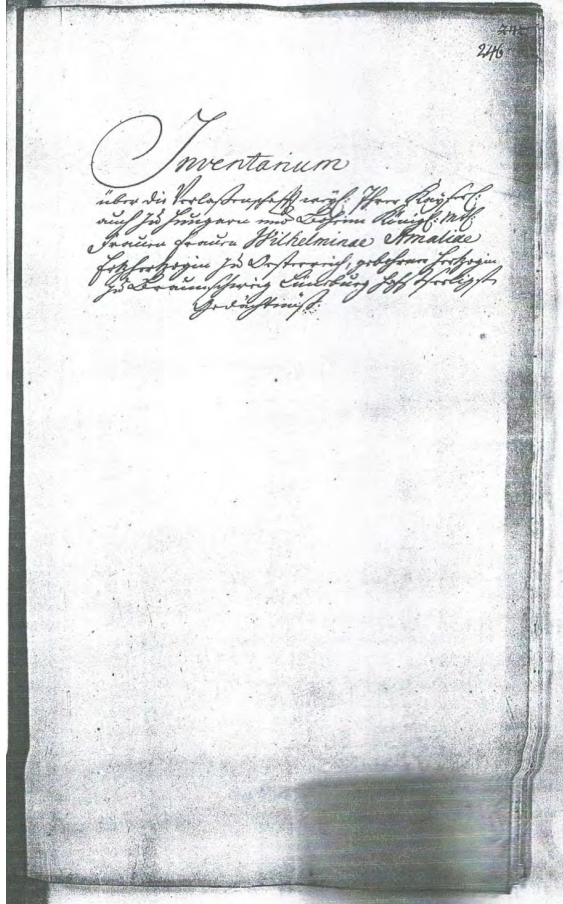 245
246
Inventarium
über die Verlaßenschafft weyl: Ihrer Kayserl:
auch zu Hungarn und Böheim Königl: Mtt:
Frauen Frauen Wilhelminae Amaliae
Ertzherzogin zu Oesterreich, gebohrnen Hertzogin
zu Braunschweig Lüneburg höchstseeligster
Gedächtnuß.